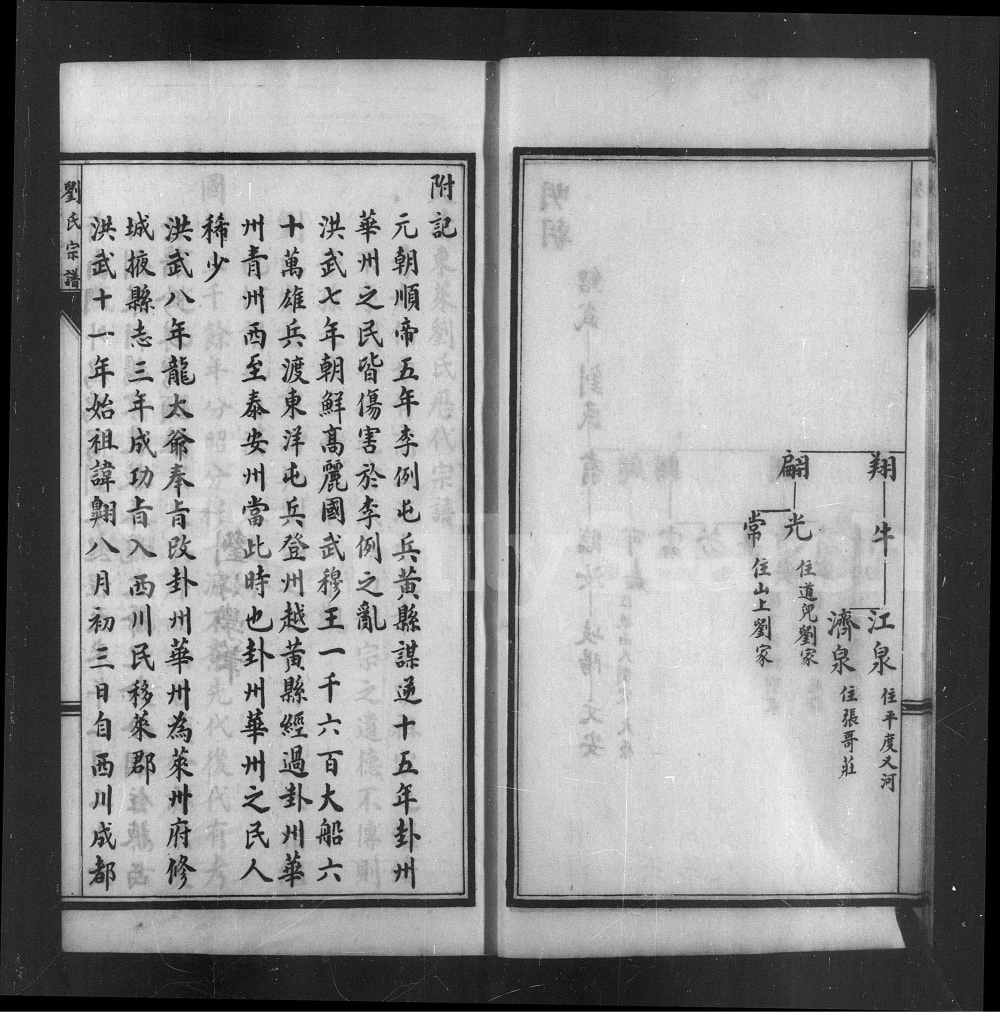 翔 牛 江泉 住平度又河
濟泉 住張哥莊
翩 光 住道兒劉家
常 住山上劉家
附記
元朝順帝五年李例屯兵黃縣謀逆十五年卦州
華州之民皆傷害於李例之亂
洪武七年朝鮮高麗國武穆王一千六百大船六
十萬雄兵渡東洋屯兵登州越黃縣經過卦州華
州青州西至泰安州當此時也卦州華州之民人
稀少
洪武八年龍太爺奉旨改卦州華州為萊州府修
城掖縣志三年成功旨入西川民移萊郡
洪武十一年始祖諱翺八月初三日自西川成都
劉氏宗譜